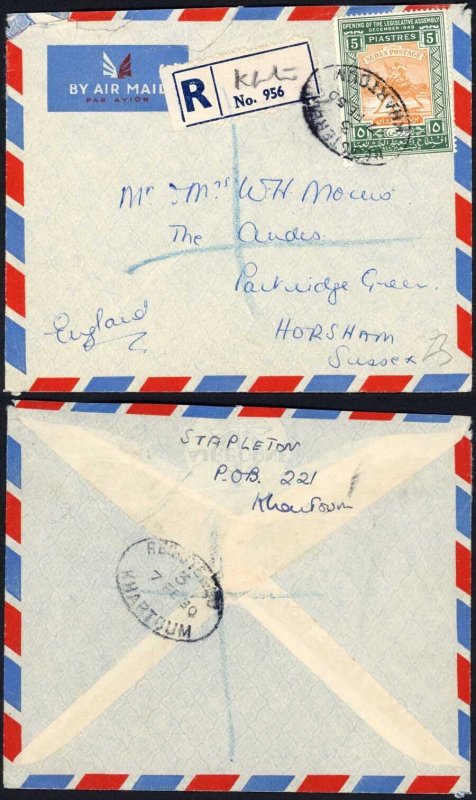 BY AIR MAIL
PAR AVION
R
No. 956
OPENING OF THE LEGISLATIVE ASSEMBLY
DECEMBER 1948
5 PIASTRES 5
SUDAN POSTAGE
٥ ٥
REGISTERED
KHARTOUM
Mr & Mrs W H Morris
The Andes
Partridge Green
HORSHAM
Sussex
England
STAPLETON
P.O.B. 221
Khartoum
REGISTERED
7 FE 50
KHARTOUM